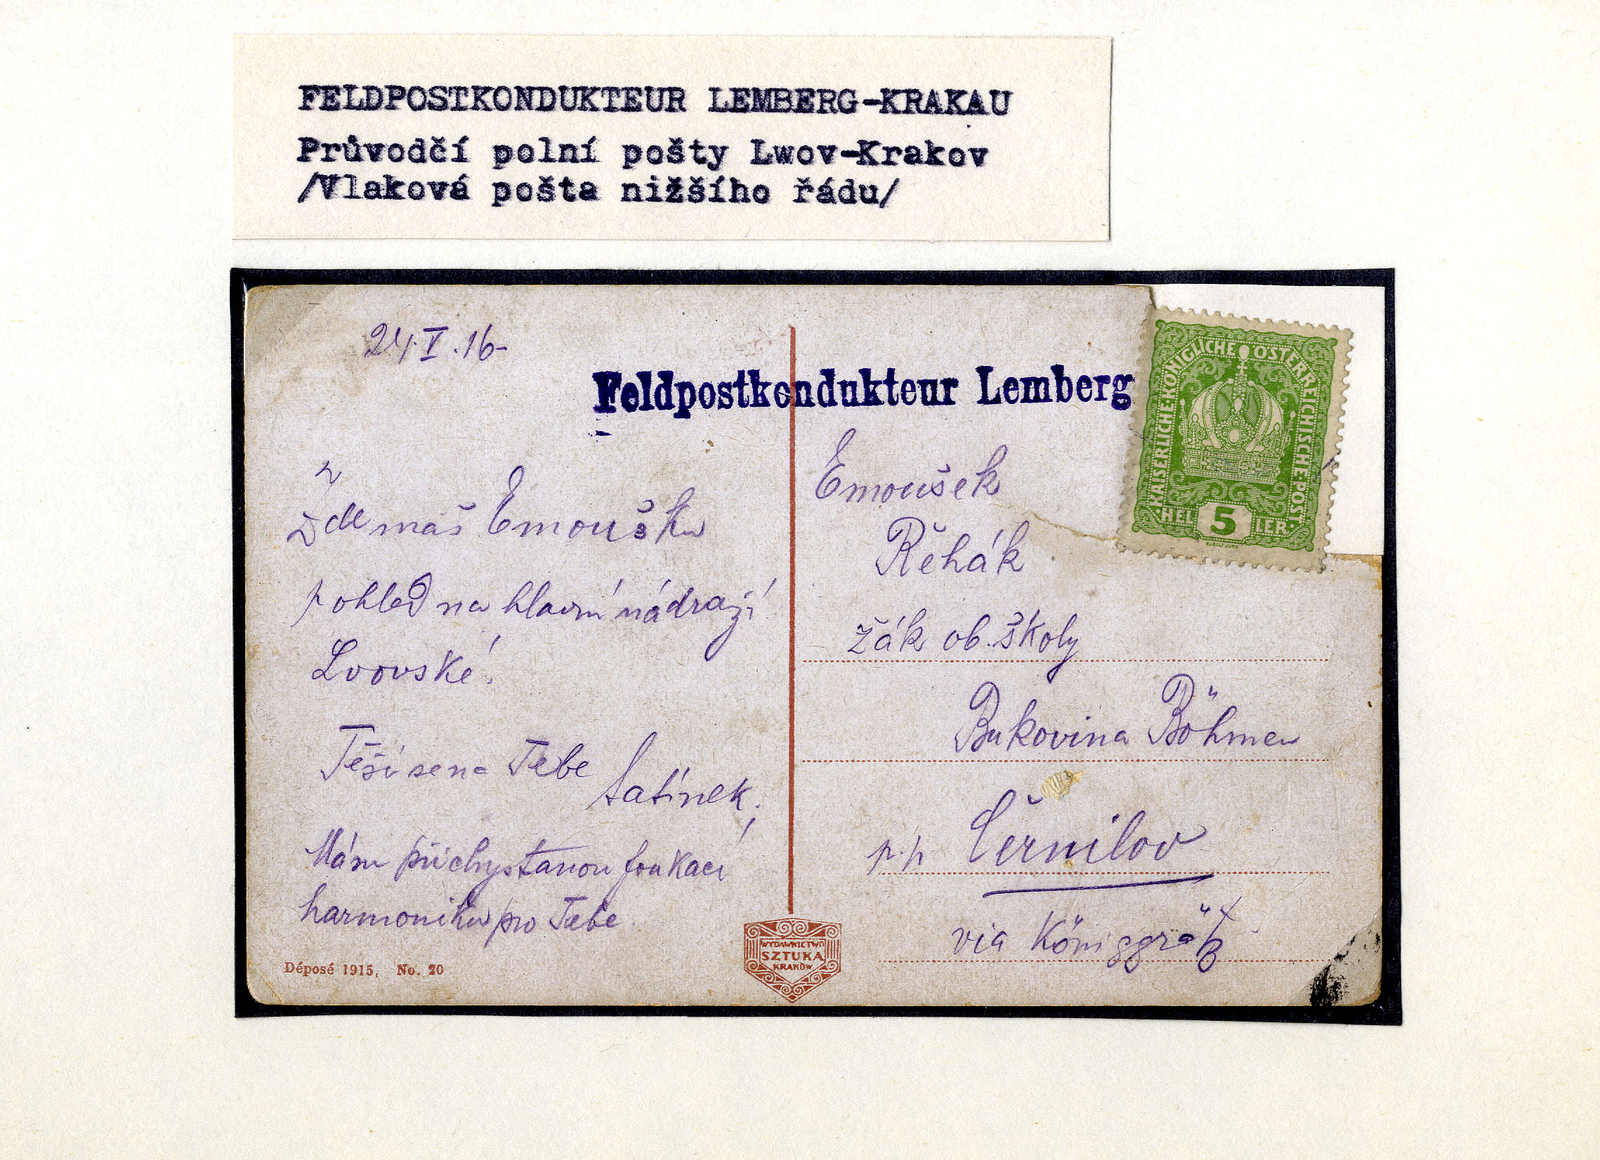 FELDPOSTKONDUKTEUR LEMBERG-KRAKAU
Průvodčí polní pošty Lwov-Krakov
/Vlaková pošta nižšího řádu/
24.V.16-
Feldpostkondukteur Lemberg
KAISERLICHE KÖNIGLICHE ÖSTERREICHISCHE POST
HEL 5 LER
Zde máš Emoušku
pohled na hlavní nádraží
Lvovské.
Těší se na Tebe
tatínek.
Mám přichystanou foukací
harmoniku pro Tebe
Emoušek
Řehák
žák ob. školy
Bukovina Böhmen
p.p. Černilov
via Königgrätz
Déposé 1915, No. 20
WYDAWNICTWO
SZTUKA
KRAKÓW